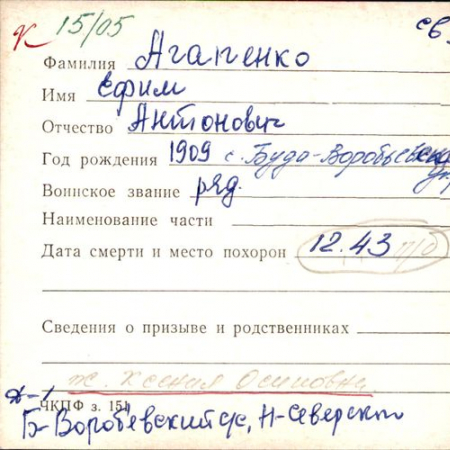 К 15/05 св.
Фамилия Агапенко
Имя Ефим
Отчество Антонович
Год рождения 1909 с. Буда-Воробьевская
Воинское звание ряд.
Наименование части
Дата смерти и место похорон 12.43 п/б
Сведения о призыве и родственниках
ж. Ксения Осиповна.
ЧКПФ з. 151
Б-Воробевский с/с, Н-Северский